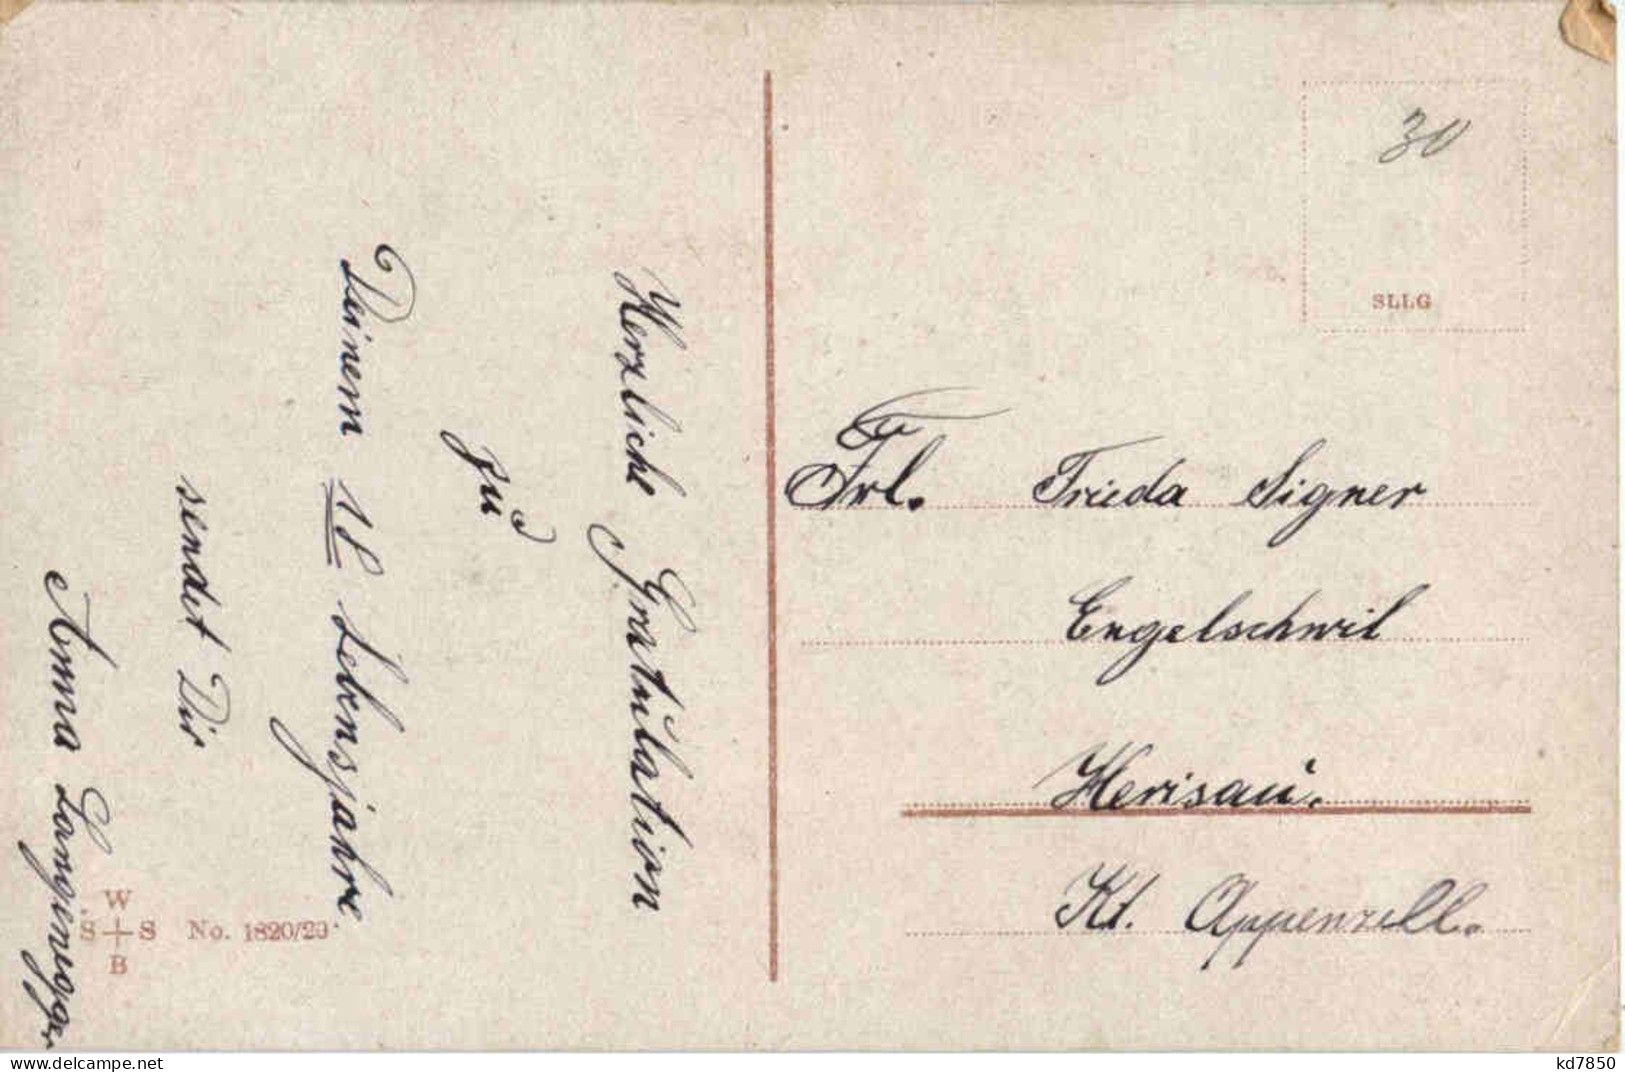 Herzliche Gratulation
zu
Deinem 18 Lebensjahre
sendet Dir
Anna Langenegger
30
SLLG
Frl. Frieda Signer
Engelschwil
Herisau.
Kt. Appenzell.
W
S S
B
No. 1820/20
www.delcampe.net
kd7850